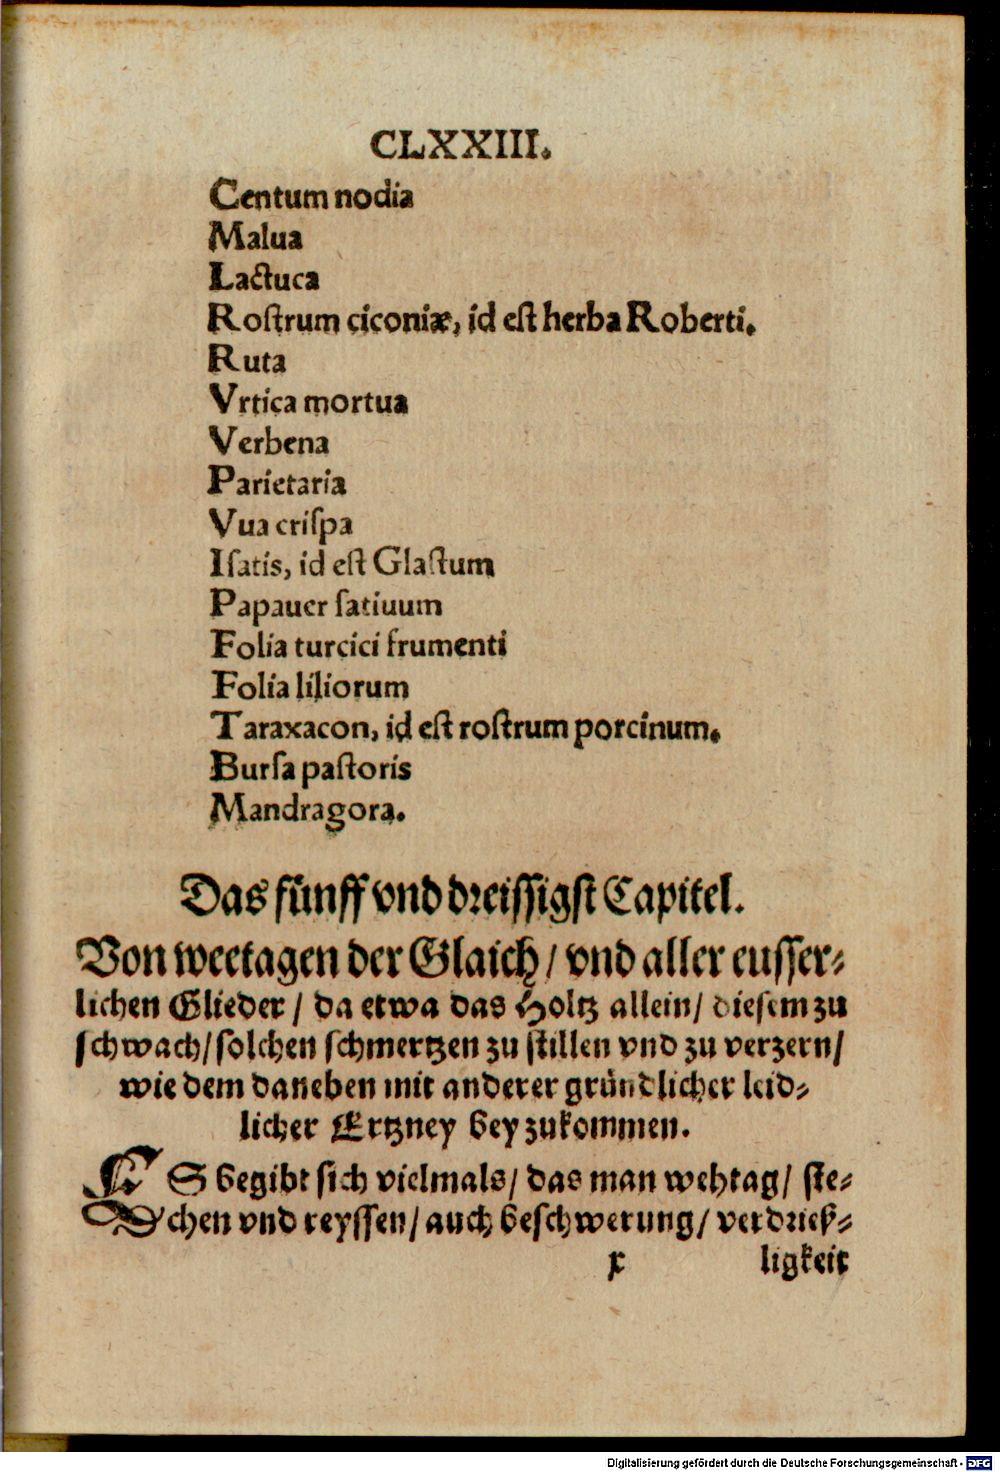 CLXXIII.
Centum nodia
Malua
Lactuca
Roſtrum ciconiæ, id eſt herba Roberti.
Ruta
Vrtica mortua
Verbena
Parietaria
Vua criſpa
Iſatis, id eſt Glaſtum
Papauer ſatiuum
Folia turcici frumenti
Folia liliorum
Taraxacon, id eſt roſtrum porcinum.
Burſa paſtoris
Mandragora.
Das fünff vnd dreiſſigſt Capitel.
Von weetagen der Glaich / vnd aller euſſer⸗
lichen Glieder / da etwa das Holtz allein / dieſem zu
ſchwach / ſolchen ſchmertzen zu ſtillen vnd zu verzern /
wie dem daneben mit anderer gründlicher leid⸗
licher Ertzney bey zukommen.
ES begibt ſich vielmals / das man wehtag / ſte⸗
chen vnd reyſſen / auch beſchwerung / verdrieß⸗
x ligkeit
Digitalisierung gefördert durch die Deutsche Forschungsgemeinschaft - DFG